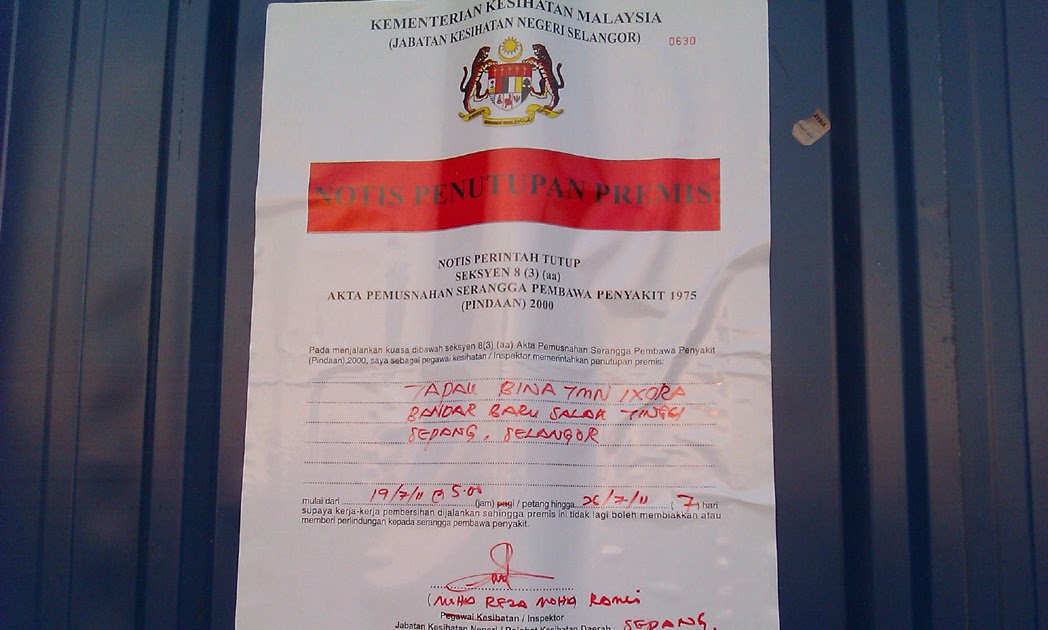 KEMENTERIAN KESIHATAN MALAYSIA
(JABATAN KESIHATAN NEGERI SELANGOR)
0630
NOTIS PENUTUPAN PREMIS
NOTIS PERINTAH TUTUP
SEKSYEN 8 (3) (aa)
AKTA PEMUSNAHAN SERANGGA PEMBAWA PENYAKIT 1975
(PINDAAN) 2000
Pada menjalankan kuasa dibawah seksyen 8(3) (aa) Akta Pemusnahan Serangga Pembawa Penyakit
(Pindaan) 2000, saya sebagai pegawai kesihatan / Inspektor memerintahkan penutupan premis:
TAPAK BINA TMN IXORA
BANDAR BARU SALAK TINGGI
SEPANG, SELANGOR
mulai dari 19/7/11 @ 5.00 (jam) pagi / petang hingga 26/7/11 ( 7 ) hari
supaya kerja-kerja pembersihan dijalankan sehingga premis ini tidak lagi boleh membiakkan atau
memberi perlindungan kepada serangga pembawa penyakit.
(MOHD REZA MOHD RAMLI
Pegawai Kesihatan / Inspektor
Jabatan Kesihatan Negeri / Pejabat Kesihatan Daerah SEPANG.